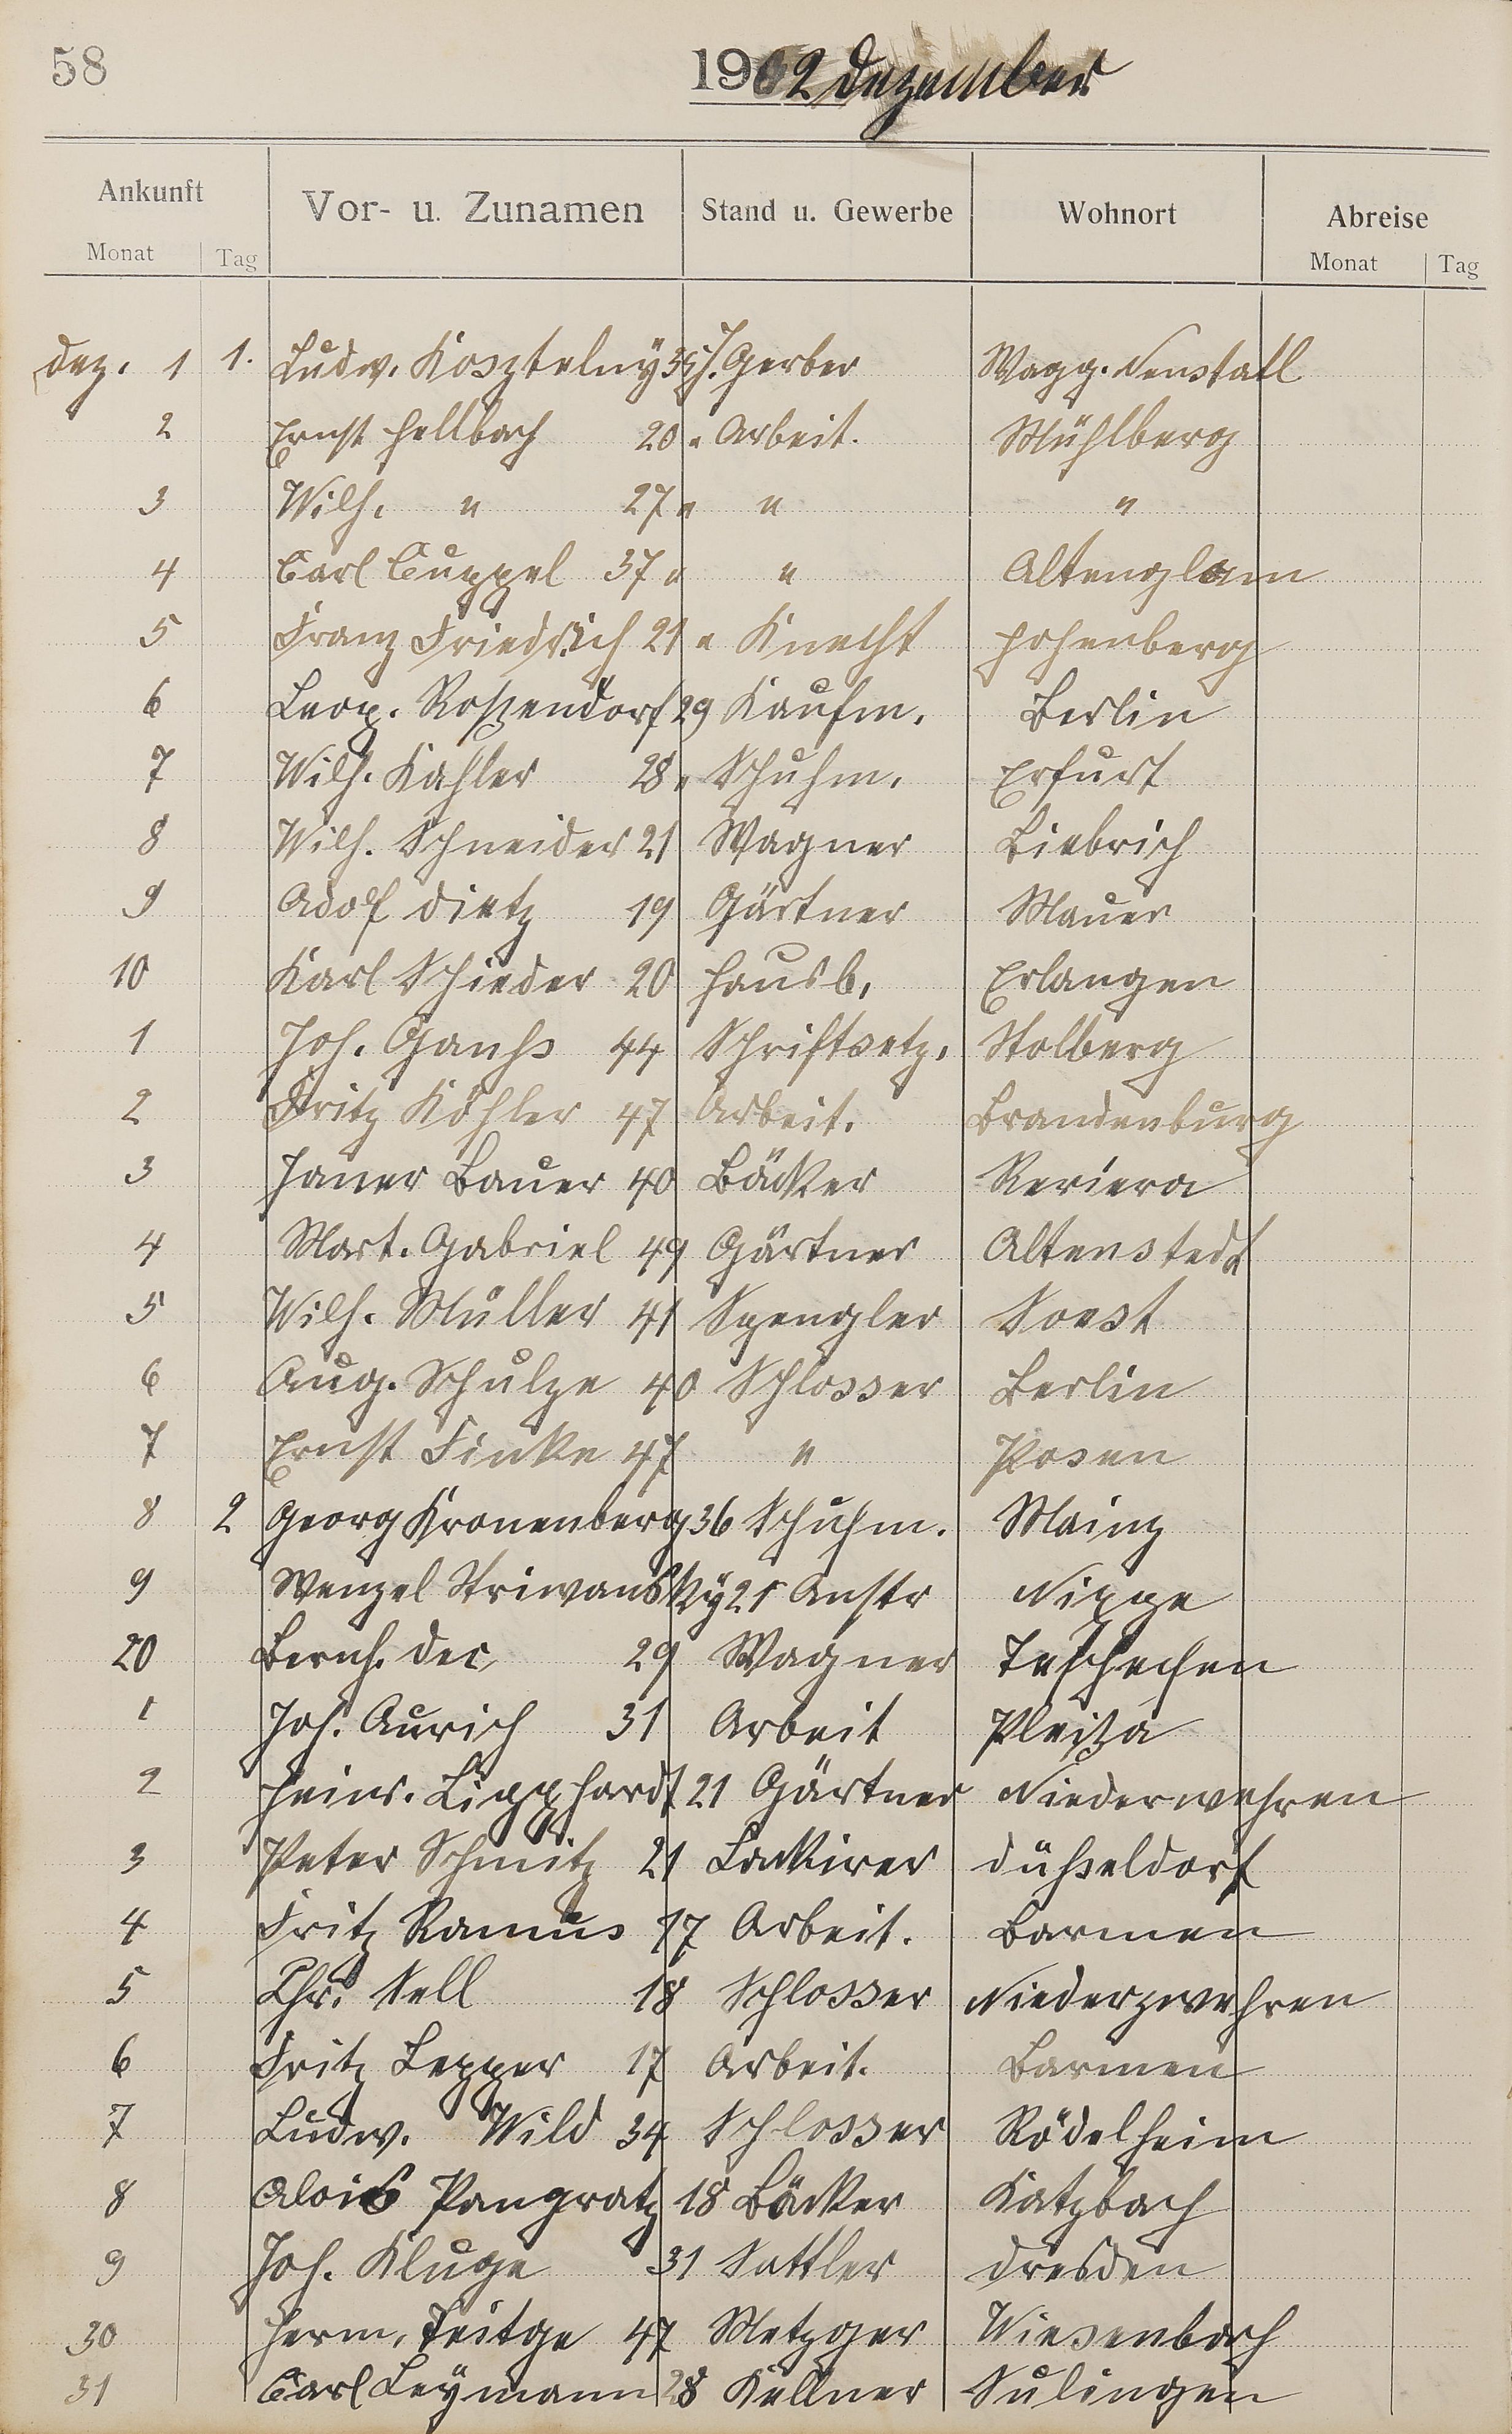 58
1902 Dezember
Ankunft Vor- u. Zunamen Stand u. Gewerbe Wohnort Abreise
Monat Tag Monat Tag
Dez. 1 1. Ludw. Kosztelny 35 J. Gerber Wagg. Neustatl
2 Ernst Hellbach 20 " Arbeit. Mühlberg
3 Wilh. " 27 " " "
4 Carl Cuppel 37 " " Altenglan
5 Franz Friedrich 21 " Knecht Hohenberg
6 Leop. Roßendorf 29 Kaufm. Berlin
7 Wilh. Kahler 28 " Schuhm. Erfurt
8 Wilh. Schneider 21 Wagner Biebrich
9 Adolf Dietz 19 Gärtner Mauer
10 Karl Schieder 20 Hausb. Erlangen
1 Joh. Ganhs 44 Schriftsetz. Stolberg
2 Fritz Köhler 47 Arbeit. Brandenburg
3 Bauer 40 Bäcker Reriera
4 Mart. Gabriel 49 Gärtner Altenstedt
5 Wilh. Müller 41 Spengler Soest
6 Aug. Schulze 40 Schlosser Berlin
7 Ernst Finke 47 " Posen
8 2 Georg Kronenberg 36 Schuhm. Mainz
9 Wenzel Striwansky 21 Anstr Nippe
20 Bernh. Dec, 29 Wagner
1 Joh. Aurich 31 Arbeit Pleißa
2 Heinr. Lipphardt 21 Gärtner Niederwehren
3 Peter Schmitz 21 Lackirer Düßseldorf
4 Fritz Ramus 17 Arbeit. Barmen
5 Chr. Sell 18 Schlosser Niederzwehren
6 Fritz Lepper 17 Arbeit. Barmen
7 Ludw. Wild 34 Schlosser Rödelheim
8 Alois Pangratz 18 Bäcker Katzbach
9 Joh. Kluge 31 Sattler Dresden
30 Herm. Teitge 47 Metzger Wiesenbach
31 Carl Leymann 28 Kellner Sulingen